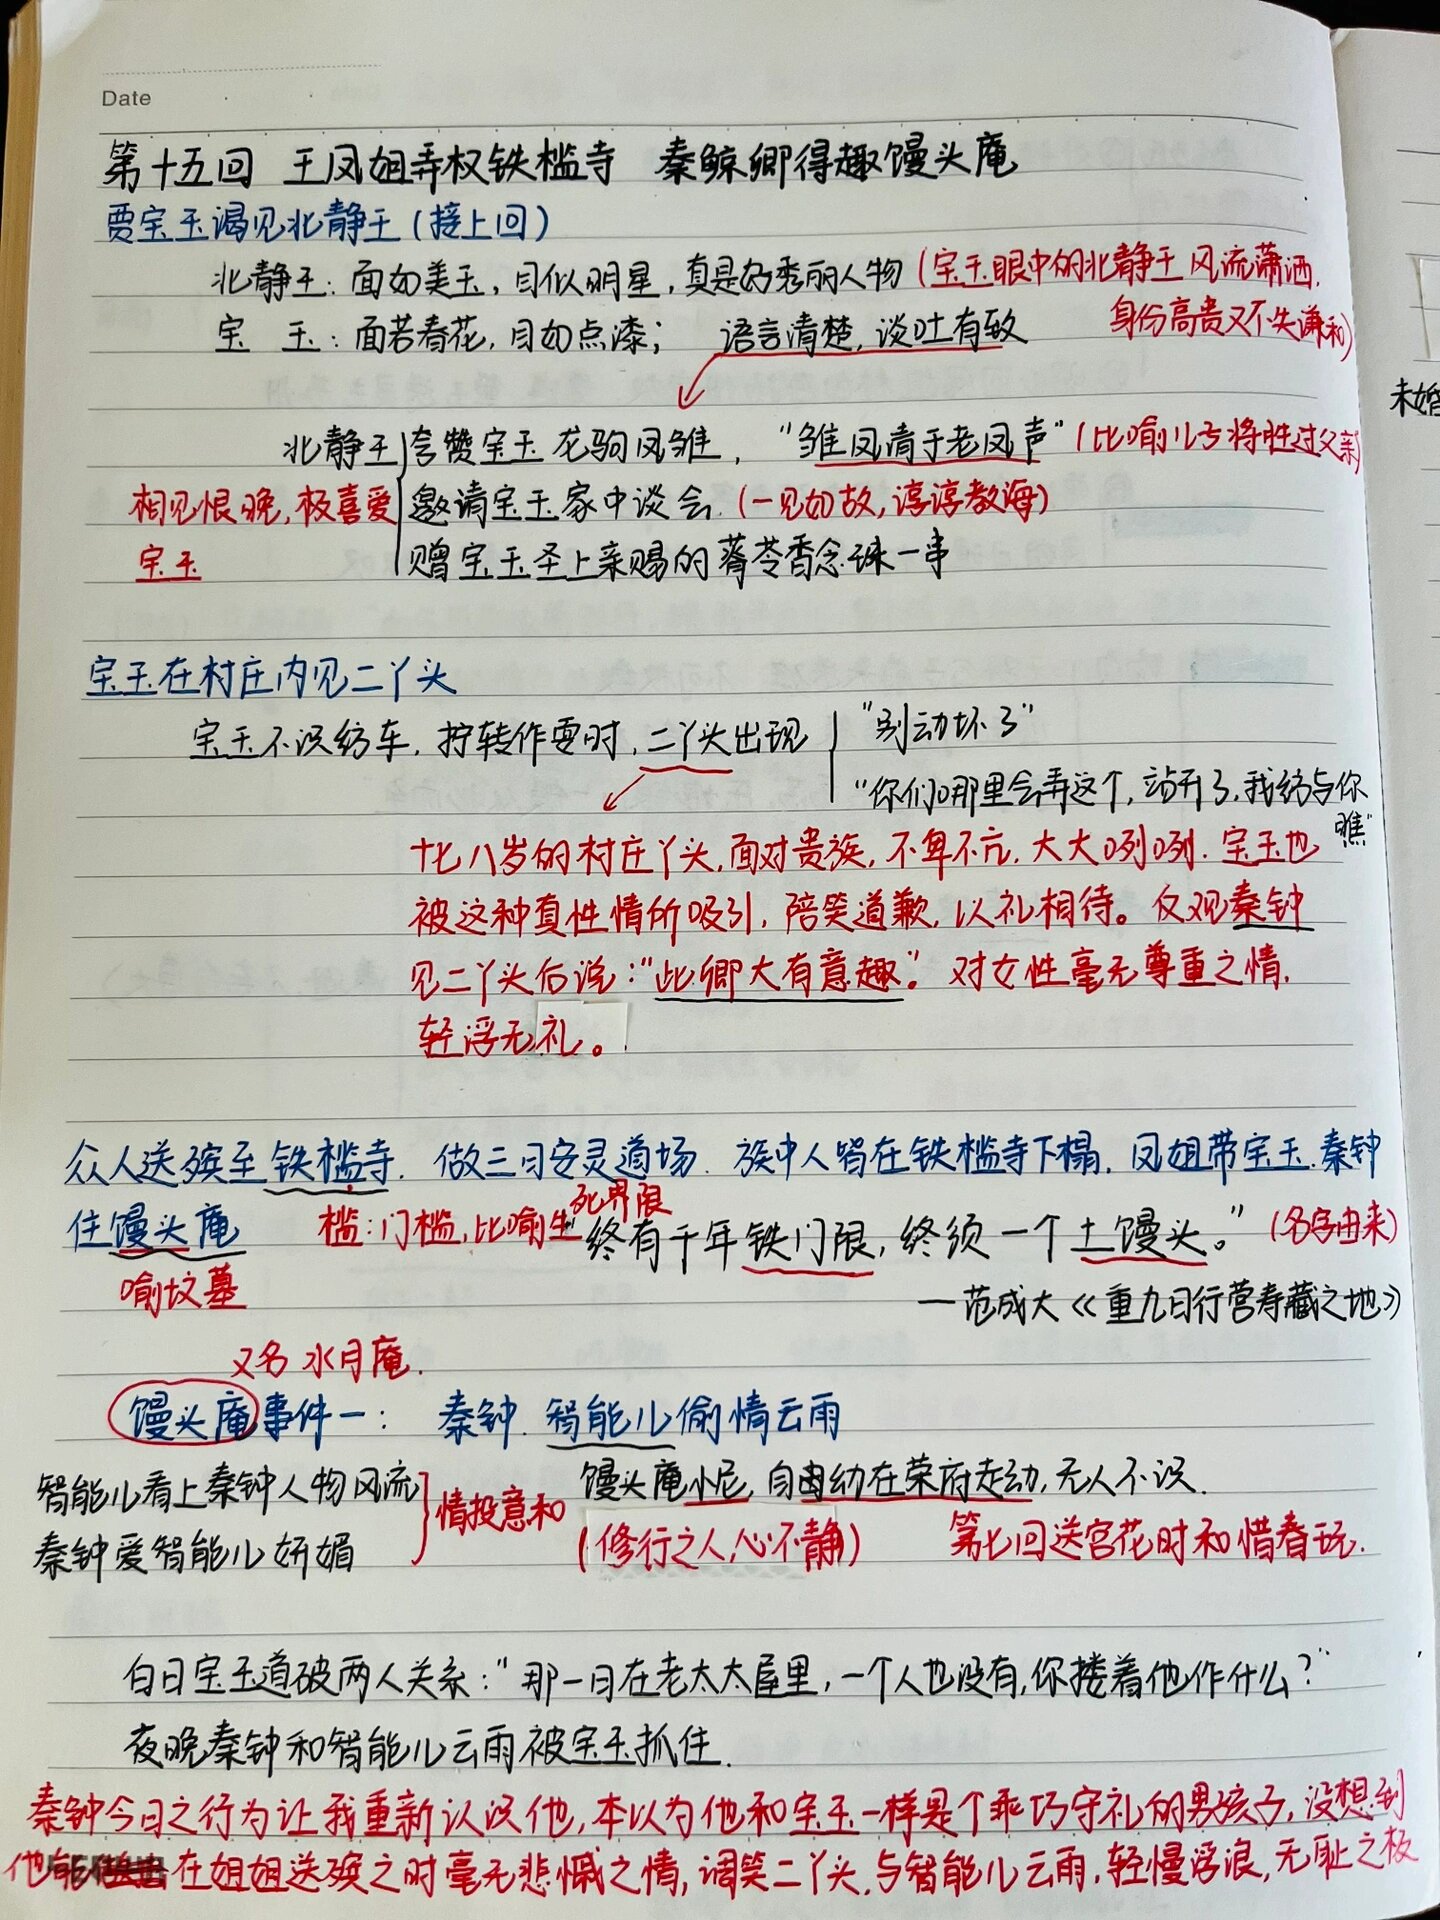 Date
第十五回 王凤姐弄权铁槛寺 秦鲸卿得趣馒头庵
贾宝玉谒见北静王(接上回)
北静王:面如美玉,目似明星,真是好秀丽人物(宝玉眼中的北静王风流潇洒,
身份高贵又不失谦和)
宝 玉:面若春花,目如点漆; 语言清楚,谈吐有致
未婚
北静王 夸赞宝玉龙驹凤雏,“雏凤清于老凤声”(比喻儿子将胜过父亲)
相见恨晚,极喜爱 邀请宝玉家中谈会.(一见如故,谆谆教诲)
宝玉 赠宝玉圣上亲赐的蓿苓香念珠一串
宝玉在村庄内见二丫头
宝玉不识纺车,拧转作耍时,二丫头出现 “别动坏了”
“你们哪里会弄这个,站开了,我纺与你
瞧”
十七八岁的村庄丫头,面对贵族,不卑不亢,大大咧咧.宝玉也
被这种真性情所吸引,陪笑道歉,以礼相待。反观秦钟
见二丫头后说:“此卿大有意趣”。对女性毫无尊重之情,
轻浮无礼。
众人送殡至铁槛寺. 做三日安灵道场. 族中人皆在铁槛寺下榻. 凤姐带宝玉.秦钟
住馒头庵 槛:门槛,比喻生死界限 “终有千年铁门限,终须一个土馒头。”(名字由来)
喻坟墓
—范成大《重九日行营寿藏之地》
又名水月庵.
馒头庵事件一: 秦钟.智能儿偷情云雨
智能儿看上秦钟人物风流 情投意和 馒头庵小尼,自由幼在荣府走动,无人不识.
秦钟爱智能儿妍媚 (修行之人,心不静) 第七回送宫花时和惜春玩.
白日宝玉道破两人关系:“那一日在老太太屋里,一个人也没有,你搂着他作什么?”
夜晚秦钟和智能儿云雨被宝玉抓住.
秦钟今日之行为让我重新认识他,本以为他和宝玉一样是个乖巧守礼的男孩子,没想到
他能在姐姐送殡之时毫无悲慽之情,调笑二丫头,与智能儿云雨,轻慢浮浪,无耻之极